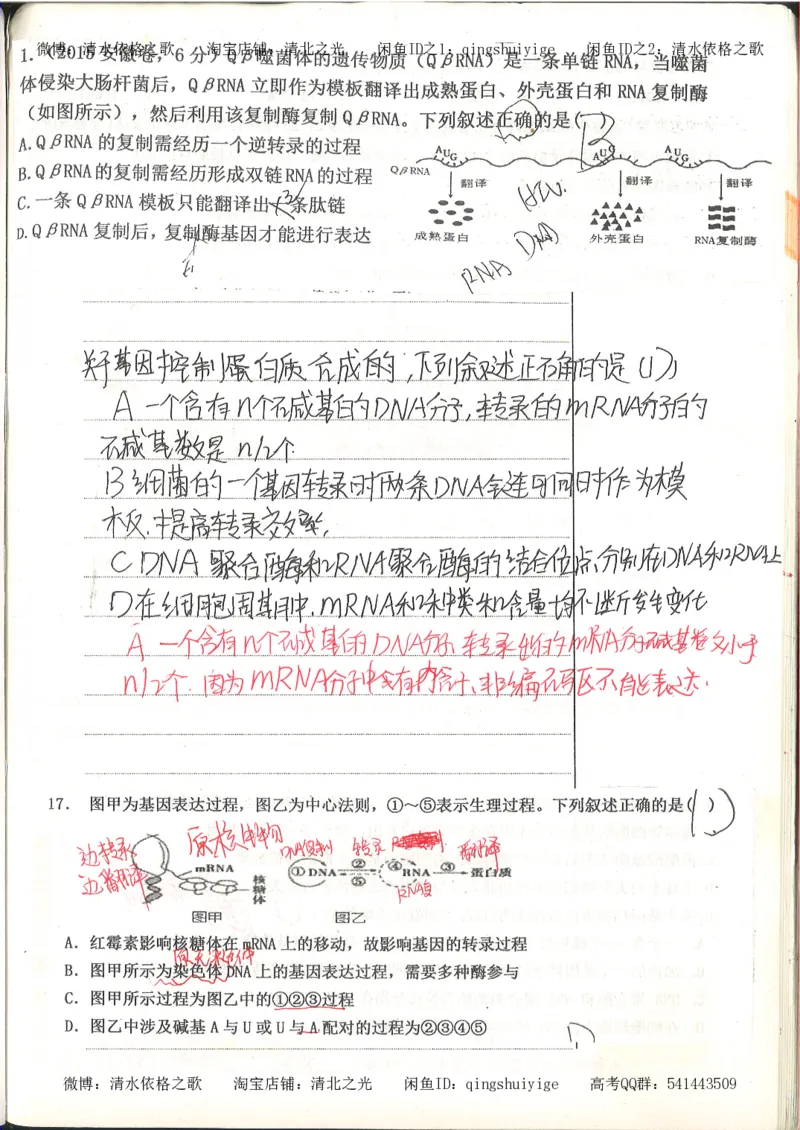 微博：清水依格之歌 淘宝店铺：清北之光 闲鱼ID之1：qingshuiyige 闲鱼ID之2：清水依格之歌
1.（2015安徽卷，6分）Qβ噬菌体的遗传物质（QβRNA）是一条单链 RNA，当噬菌
体侵染大肠杆菌后，QβRNA 立即作为模板翻译出成熟蛋白、外壳蛋白和 RNA 复制酶
（如图所示），然后利用该复制酶复制 QβRNA。下列叙述正确的是( B )
A.QβRNA 的复制需经历一个逆转录的过程
B.QβRNA的复制需经历形成双链RNA的过程
C.一条 QβRNA 模板只能翻译出一条肽链
D.QβRNA 复制后，复制酶基因才能进行表达
AUG AUG AUG
QβRNA
翻译 翻译 翻译
成熟蛋白 外壳蛋白 RNA复制酶
HIV.
RNA DNA
3
关于基因控制蛋白质合成的，下列叙述正确的是（D）
A 一个含有n个碱基的DNA分子，转录的mRNA分子的
碱基数是 n/2个
B 细菌的一个基因转录时两条DNA链可同时作为模
板，提高转录效率，
C DNA聚合酶和RNA聚合酶的结合位点，分别在DNA和RNA上
D 在细胞周期中，mRNA和种类和含量均不断发生变化
A 一个含有n个碱基的DNA分子 转录出的mRNA分子碱基数小于
n/2个. 因为mRNA分子中含有内含子、非编码区不能表达.
17. 图甲为基因表达过程，图乙为中心法则，①～⑤表示生理过程。下列叙述正确的是( D )
边转录
边翻译
原核生物
mRNA
核糖体
图甲
DNA复制 转录 翻译
①DNA ② ⑤ ④RNA ③ 蛋白质
图乙
A. 红霉素影响核糖体在 mRNA 上的移动，故影响基因的转录过程
原无染色体
B. 图甲所示为染色体 DNA 上的基因表达过程，需要多种酶参与
C. 图甲所示过程为图乙中的①②③过程
D. 图乙中涉及碱基 A 与 U 或 U 与 A 配对的过程为②③④⑤
微博：清水依格之歌 淘宝店铺：清北之光 闲鱼ID：qingshuiyige 高考QQ群：541443509